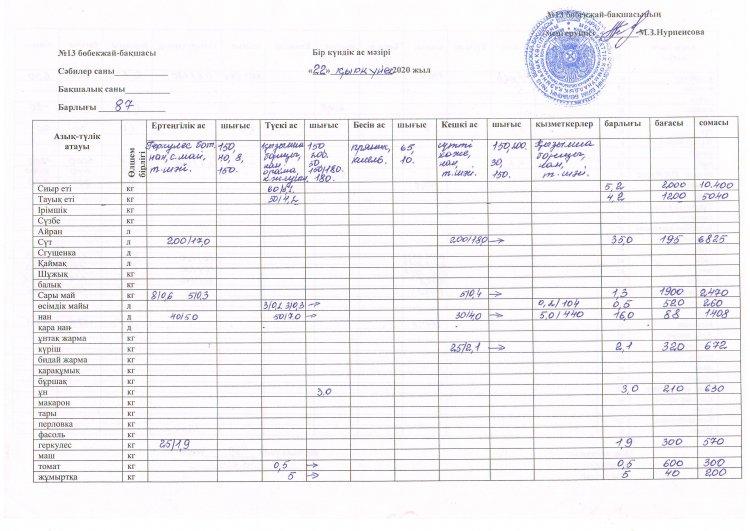 №13 бөбекжай-бақшасының
М.З.Нурпеисова
№13 бөбекжай-бақшасы
Бір күндік ас мәзірі
Сәбилер саны
«22» қыркүйек 2020 жыл
Бақшалық саны
Барлығы 87
Азық-түлік атауы Өлшем бірлігі Ертеңгілік ас шығыс Түскі ас шығыс Бесін ас шығыс Кешкі ас шығыс қызметкерлер барлығы бағасы сомасы
Геркулес бот. нан, с.май, т.шәй 150, 40, 8, 150. қызылша борщы, нан 150 200. 50 150/180. 180. пряник, кисель. 65, 10. сүтті көже, нан, т.шәй. 150,200. 30, 150. қызылша борщы, нан, т.шәй.
Сиыр еті кг 5,2 2000 10.400
Тауық еті кг 50/4,2 4,2 1200 5040
Ірімшік кг
Сүзбе кг
Айран л
Сүт л 200/17,0 200/180 → 35,0 195 6825
Сгущенка л
Қаймақ л
Шұжық кг
балық кг
Сары май кг 8/0,6 5/0,3 5/0,4 → 1,3 1900 2470
өсімдік майы л 3/0,2 3/0,3 → 0,2/104 0,5 520 260
нан л 40/50 50/70 → 30/40 → 5,0/440 16,0 88 1408
қара нан д
ұнтақ жарма кг
күріш кг 25/2,1 → 2,1 320 672
бидай жарма кг
қарақұмық кг
бұршақ кг
ұн кг 3,0 3,0 210 630
макарон кг
тары кг
перловка кг
фасоль кг
геркулес кг 25/1,9 1,9 300 570
маш кг
томат кг 0,5 → 0,5 600 300
жұмыртқа кг 5 → 5 40 200